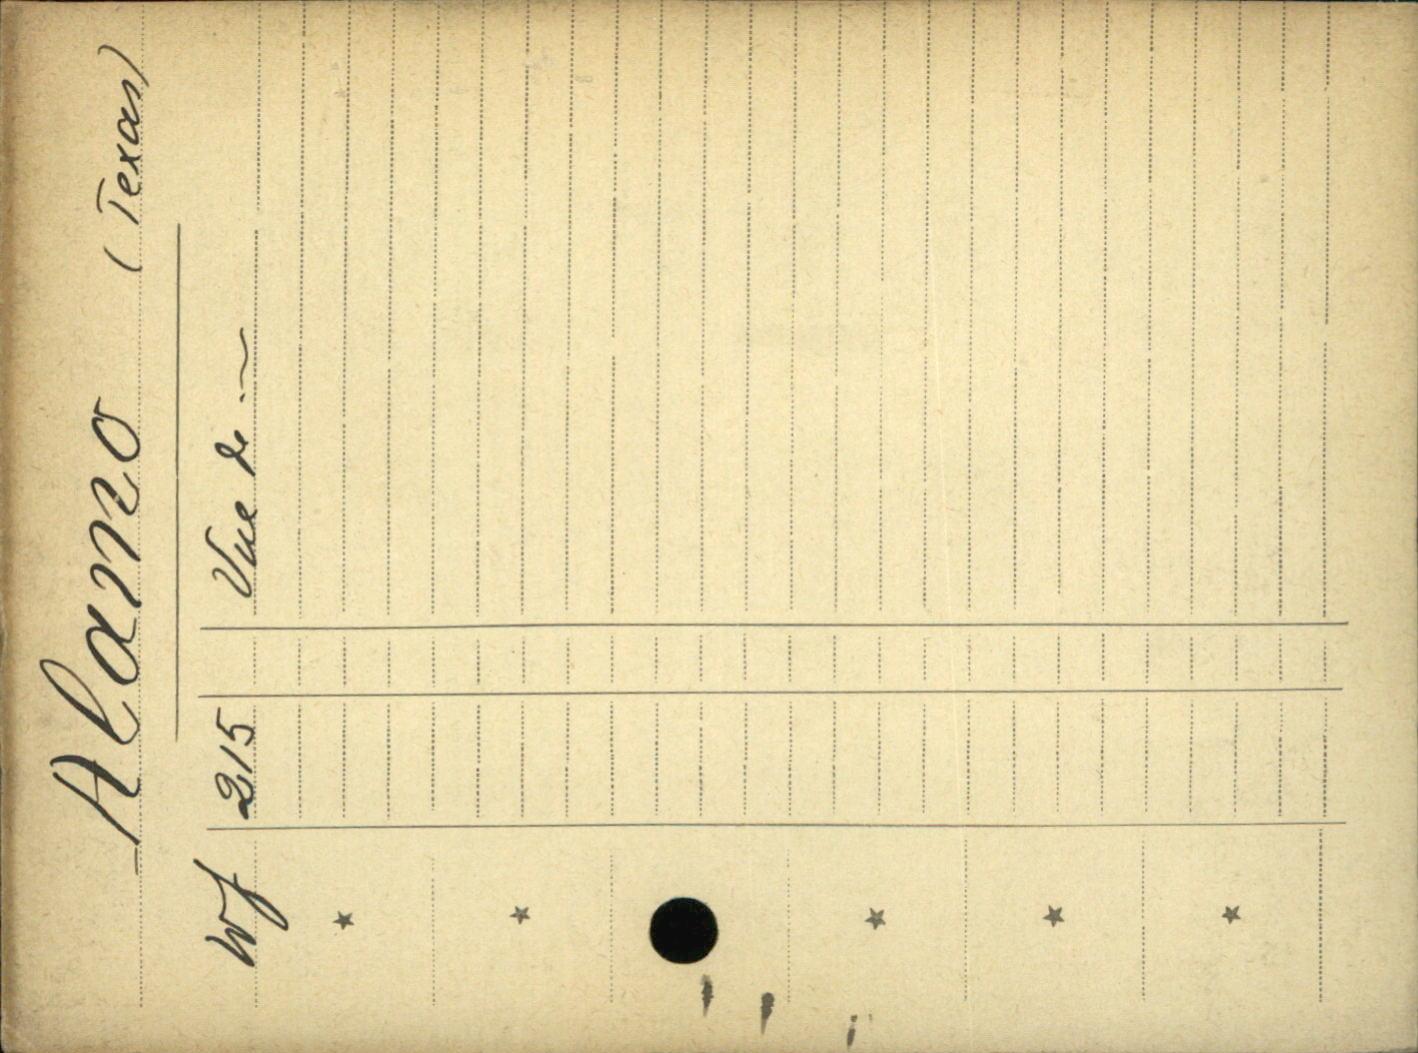 Alamo (Texas)
Wf 215 Vue de —